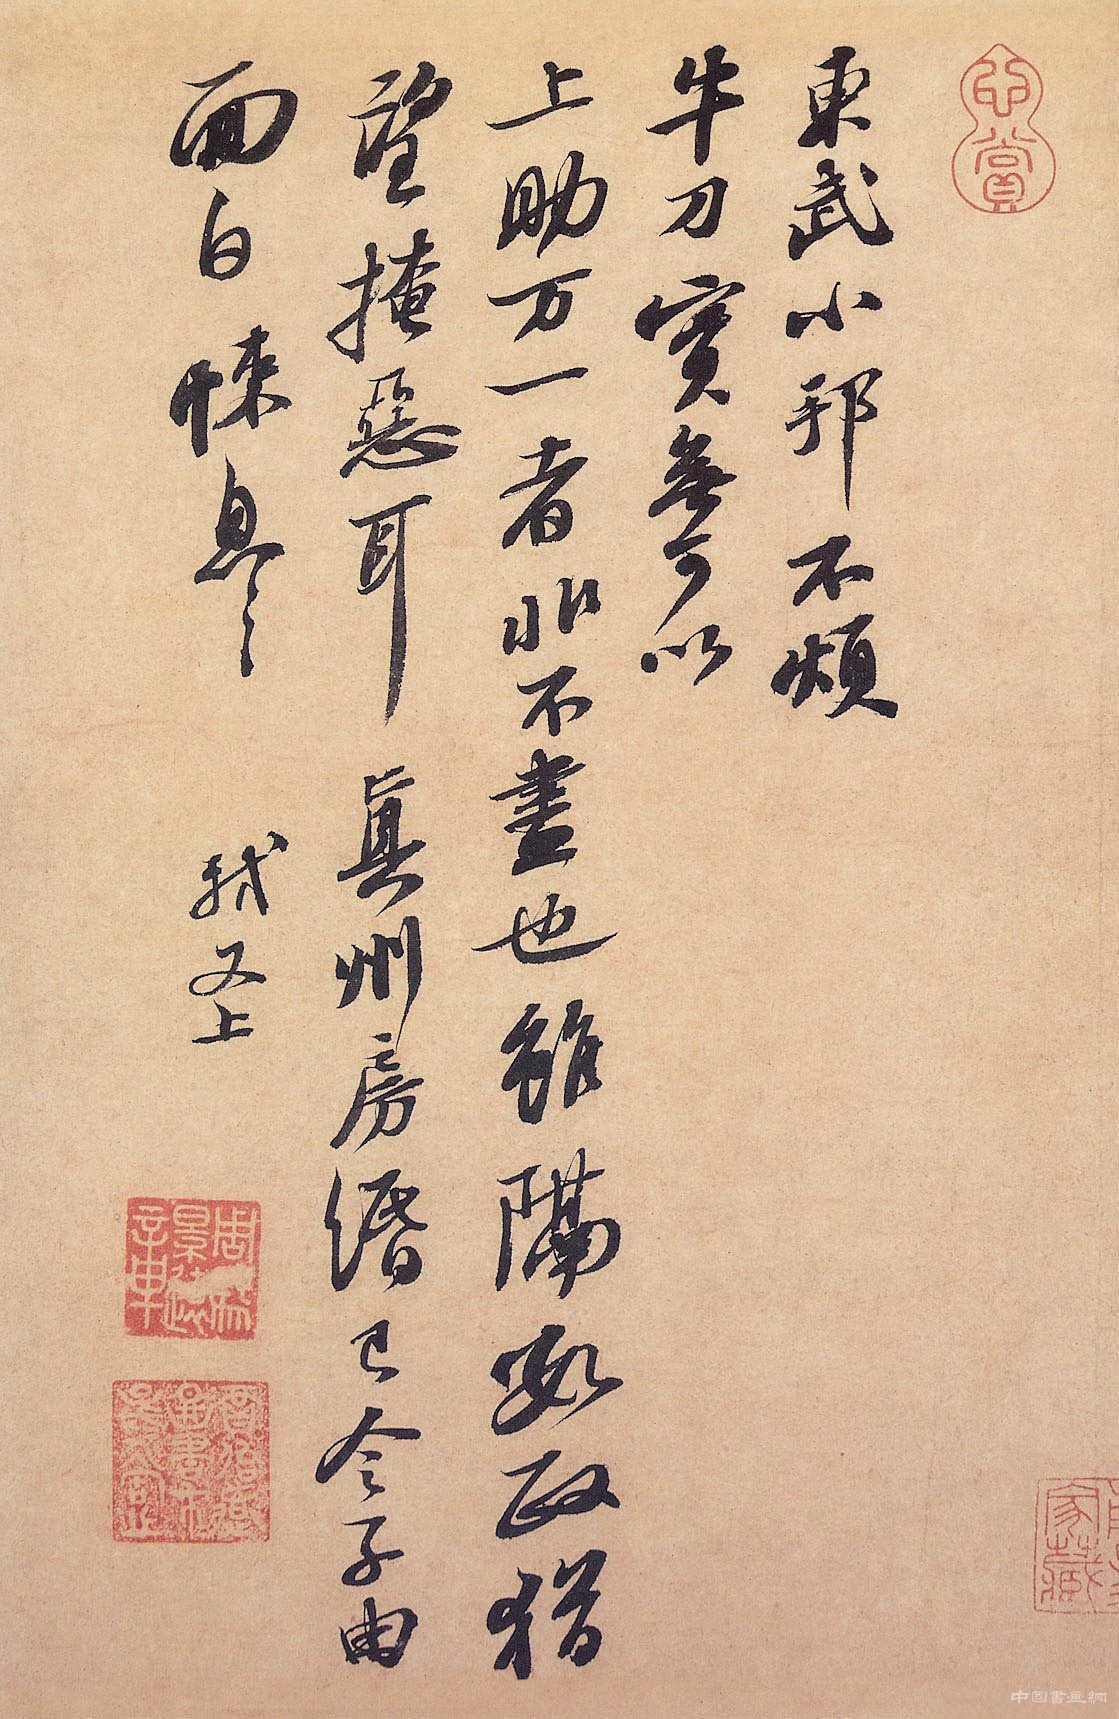 東武小邦不煩
牛刀實無可以
上助万一者非不盡也雖隔數政猶
望掩惡耳真州房緡已令子由
面白悚息〻
軾又上
家藏
中国書画網